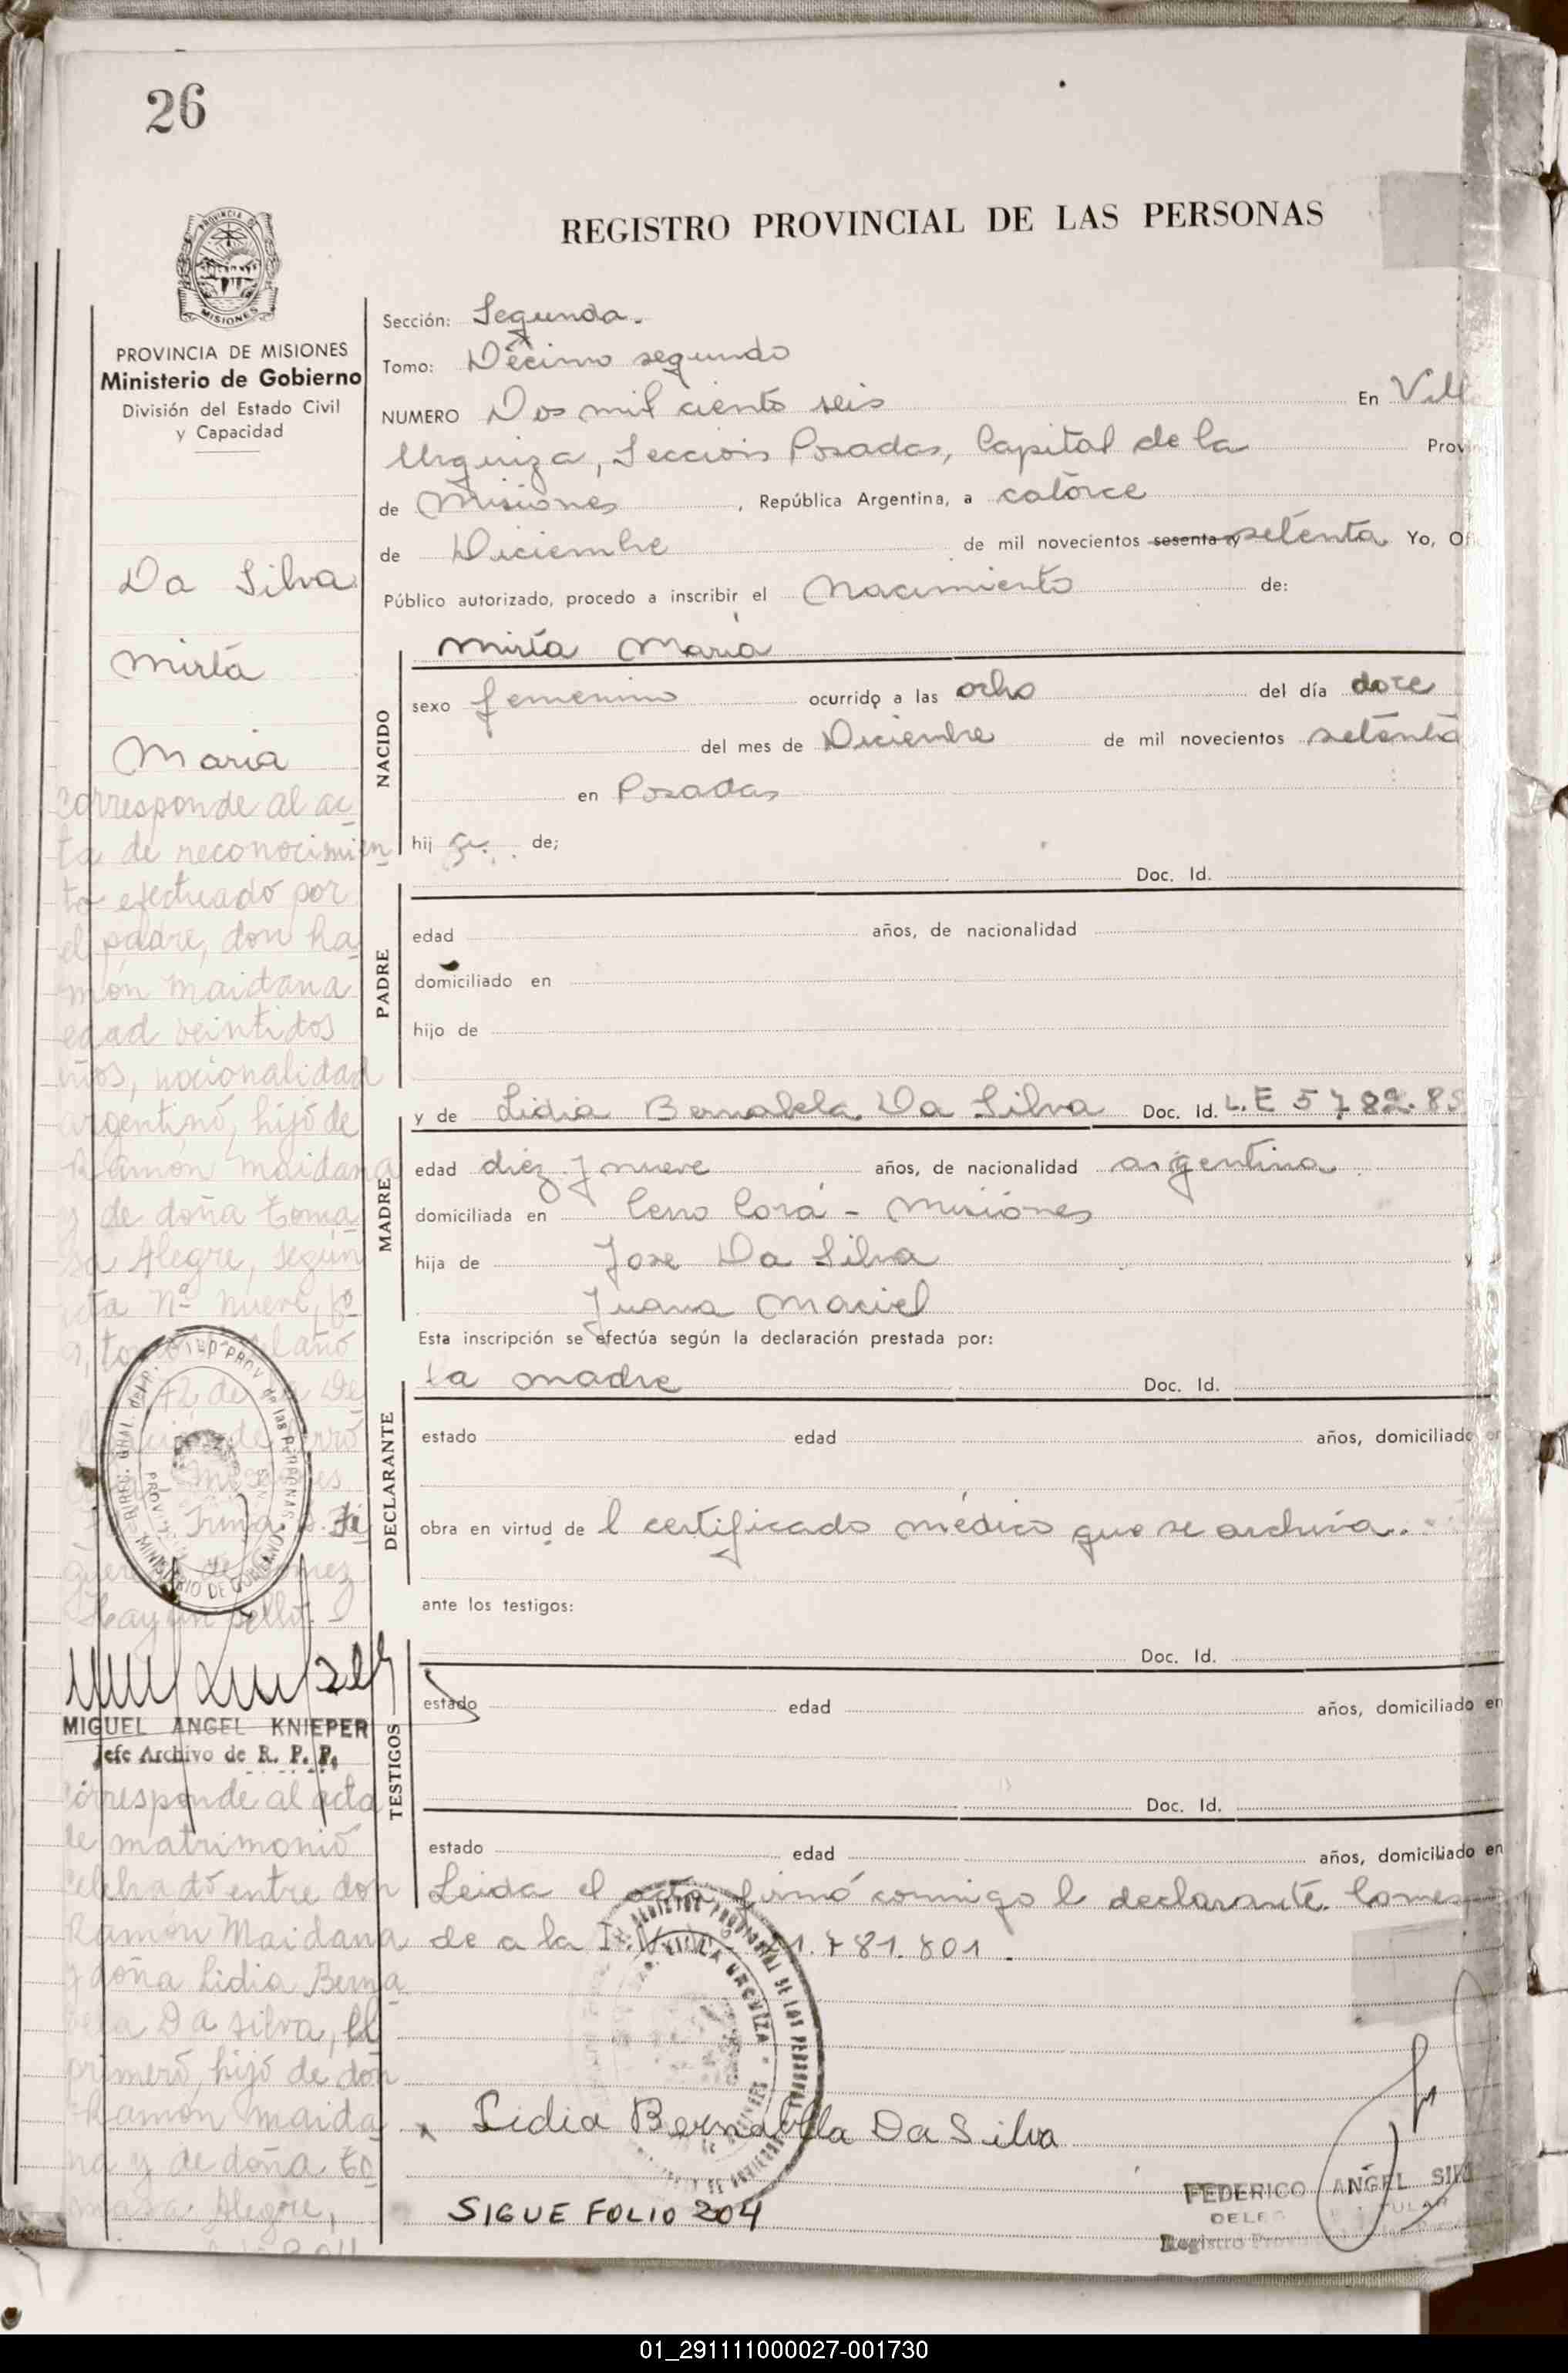 26
REGISTRO PROVINCIAL DE LAS PERSONAS
PROVINCIA DE
MISIONES
PROVINCIA DE MISIONES
Ministerio de Gobierno
División del Estado Civil
y Capacidad
Da Silva
Mirta
Maria
Corresponde al ac
ta de reconocimien
to efectuado por
el padre, don Ra
món Maidana
edad veintidos
años, nacionalidad
argentino, hijo de
Ramón Maidana
y de doña Toma
sa Alegre, según
ta Nº nueve, fº
año
72 de
de
Irma
de
Hay un sello.
MIGUEL ANGEL KNIEPER
Jefe Archivo de R. P. P.
Corresponde al acta
de matrimonio
celebrado entre don
Ramón Maidana
y doña Lidia Berna
Da Silva, el
primero, hijo de don
Ramón Maida
na y de doña To
masa Alegre,
Sección: Segunda.
Tomo: Décimo segundo
NUMERO Dos mil ciento seis En Vill
Urquiza, Sección Posadas, Capital de la Provin
de Misiones, República Argentina, a catorce
de Diciembre de mil novecientos sesenta y setenta Yo, Of
Público autorizado, procedo a inscribir el Nacimiento de:
NACIDO
Mirta Maria
sexo femenino ocurrido a las ocho del día doce
del mes de Diciembre de mil novecientos setenta
en Posadas
hij a de;
Doc. Id.
PADRE
edad años, de nacionalidad
domiciliado en
hijo de
MADRE
y de Lidia Bernabela Da Silva Doc. Id. L.E 5.782.85
edad diez y nueve años, de nacionalidad argentina
domiciliada en Cerro Corá - Misiones
hija de Jose Da Silva y
Juana Maciel
Esta inscripción se efectúa según la declaración prestada por:
DECLARANTE
la madre Doc. Id.
estado edad años, domiciliado en
obra en virtud de l certificado médico que se archiva.
ante los testigos:
TESTIGOS
Doc. Id.
estado edad años, domiciliado en
Doc. Id.
estado edad años, domiciliado en
Leida el acta firmó conmigo l declarante.
de a la 1.781.801.
VILLA URQUIZA
Lidia Bernabela Da Silva
SIGUE FOLIO 204
FEDERICO ANGEL
Registro
01_291111000027-001730